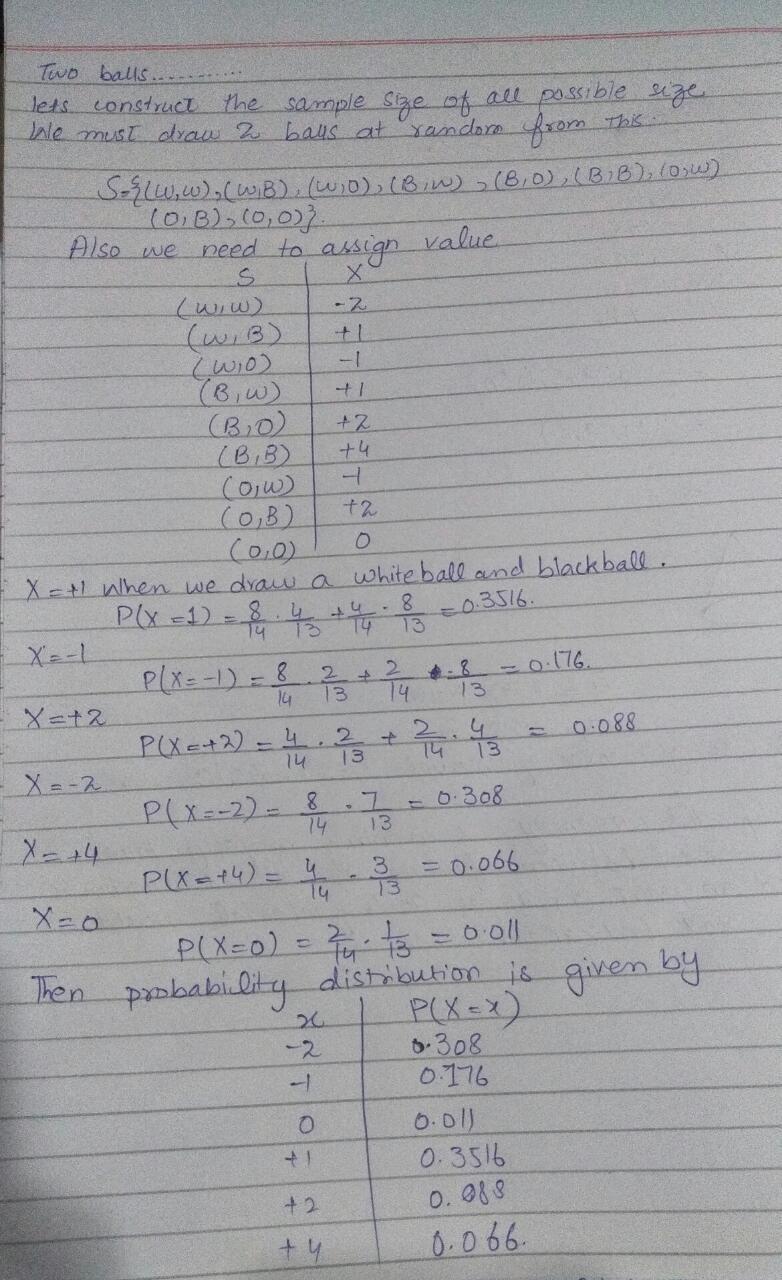 Two balls...........
lets construct the sample size of all possible size
We must draw 2 balls at random from this.
S={(W,W),(W,B),(W,O),(B,W),(B,O),(B,B),(O,W)
(O,B),(O,O)}.
Also we need to assign value
S X
(W,W) -2
(W,B) +1
(W,O) -1
(B,W) +1
(B,O) +2
(B,B) +4
(O,W) -1
(O,B) +2
(O,O) 0
X=+1 When we draw a whiteball and blackball.
P(X=1) = 8/14 . 4/13 + 4/14 . 8/13 = 0.3516.
X=-1
P(X=-1) = 8/14 . 2/13 + 2/14 . 8/13 = 0.176.
X=+2
P(X=+2) = 4/14 . 2/13 + 2/14 . 4/13 = 0.088
X=-2
P(X=-2) = 8/14 . 7/13 = 0.308
X=+4
P(X=+4) = 4/14 . 3/13 = 0.066
X=0
P(X=0) = 2/14 . 1/13 = 0.011
Then probability distribution is given by
x P(X=x)
-2 0.308
-1 0.176
0 0.011
+1 0.3516
+2 0.088
+4 0.066.